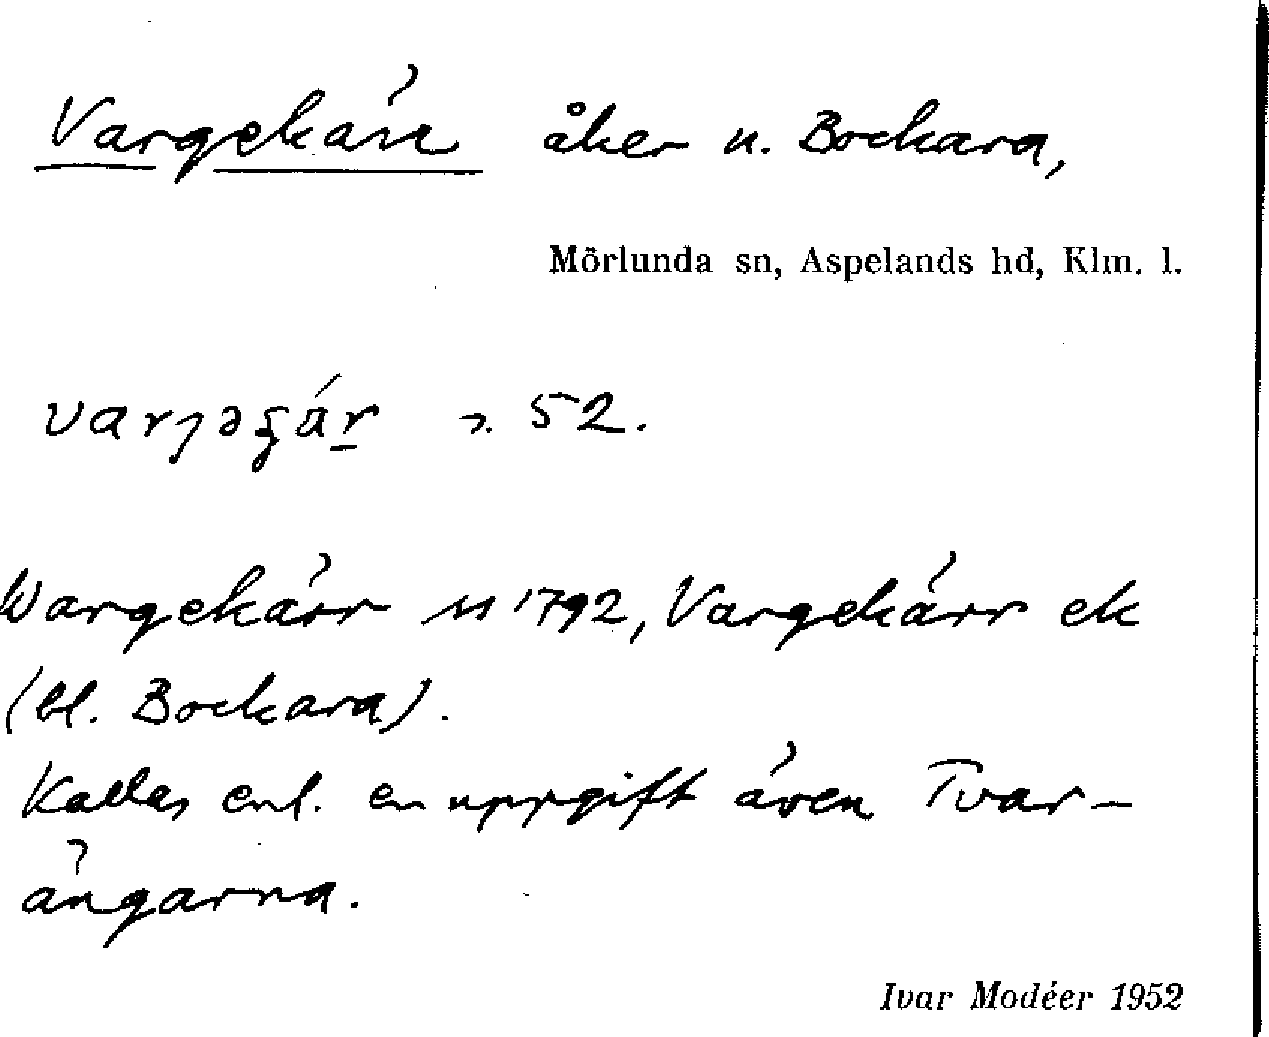 Vargekärr åker u. Bockara,
Mörlunda sn, Aspelands hd, Klm. l.
52.
Wargekärr 1792, Vargekärr ek
(bl. Bockara).
Kallas enl. en uppgift även Tvar-
ängarna.
Ivar Modéer 1952